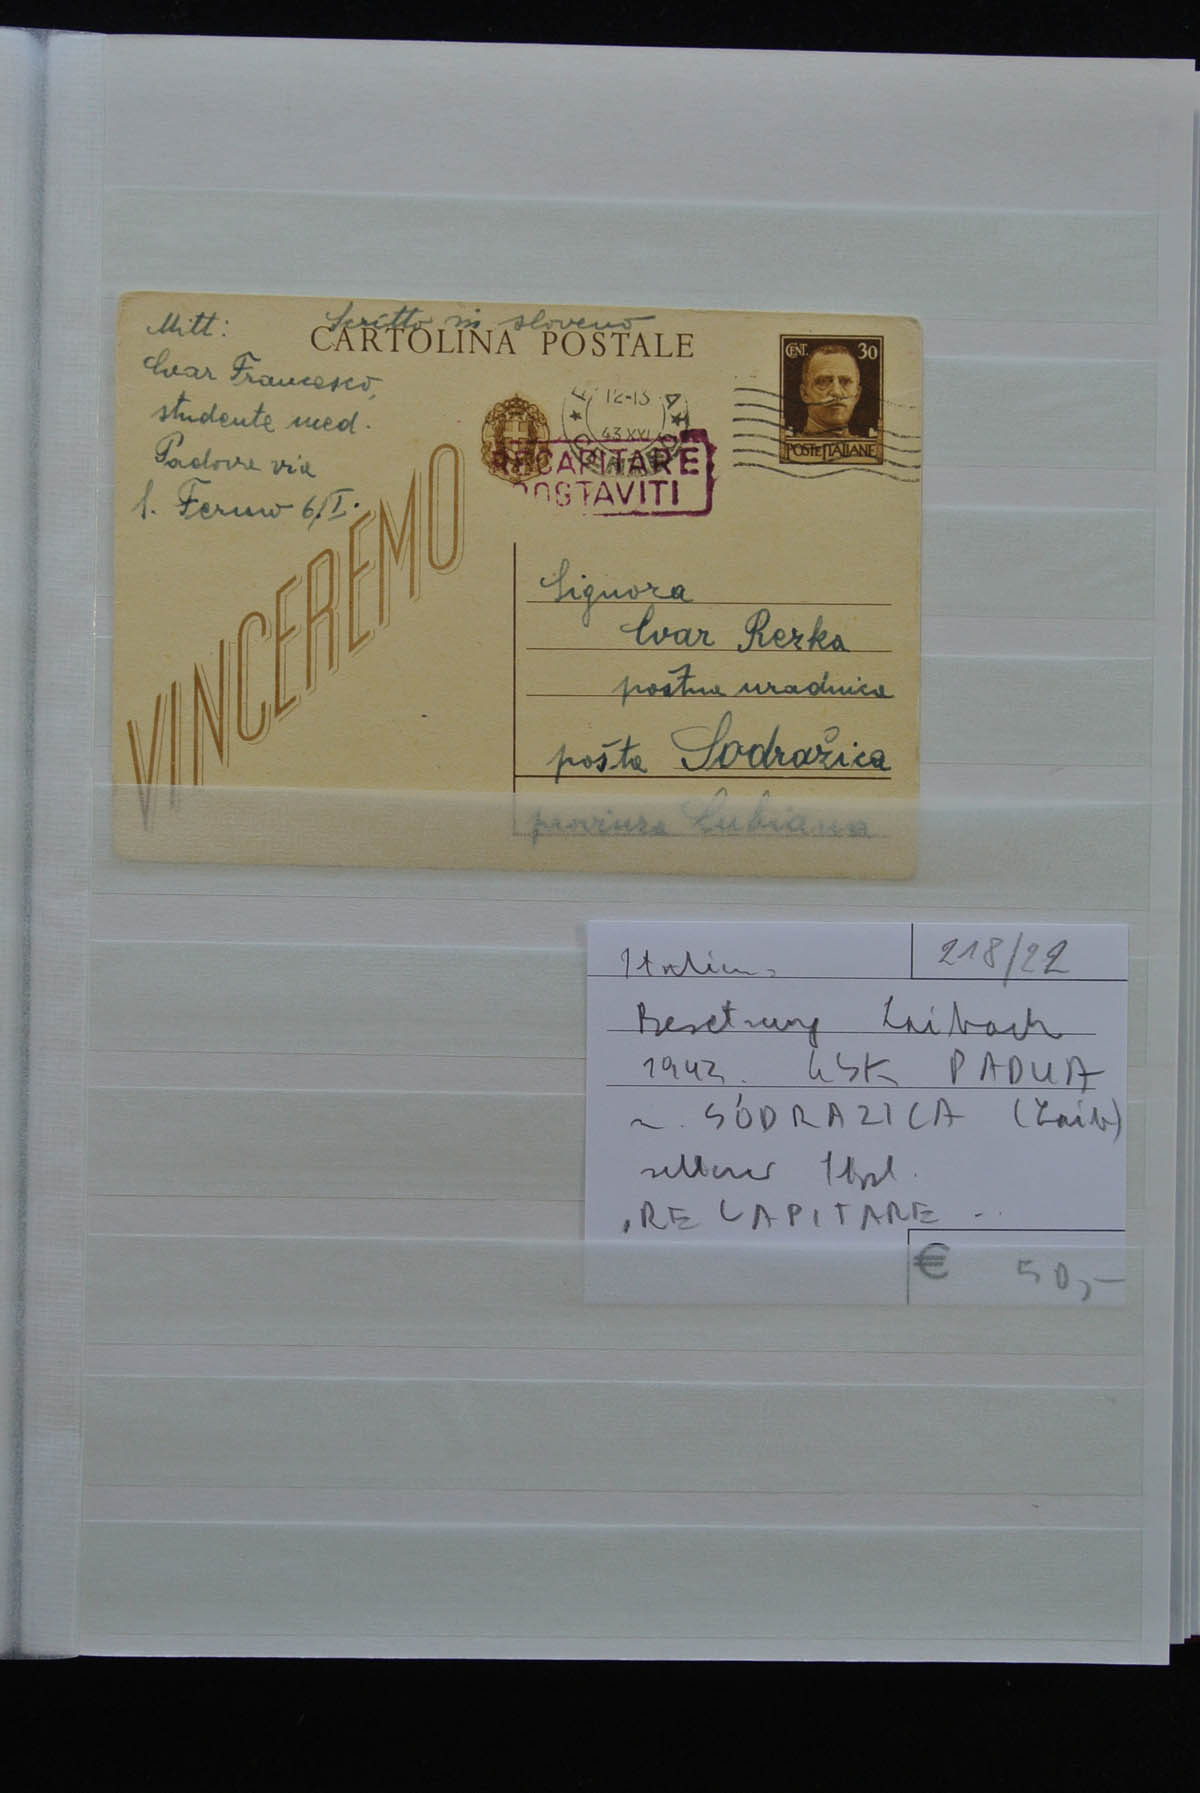 Mitt:
Scritto in sloveno
CARTOLINA POSTALE
Francesco,
studente med.
Padova via
S. Fermo 6/I.
CENT. 30
POSTE ITALIANE
12-13
43 XXI
RECAPITARE
DOSTAVITI
VINCEREMO
Signora
Rezka
poštna uradnica
pošta Sodražica
provinza Lubiana
Italien
218/22
Besetzung Laibach
1943. GSK PADUA
n. SODRAZICA (Laib)
seltener Stpl.
"RECAPITARE --
€ 50,-